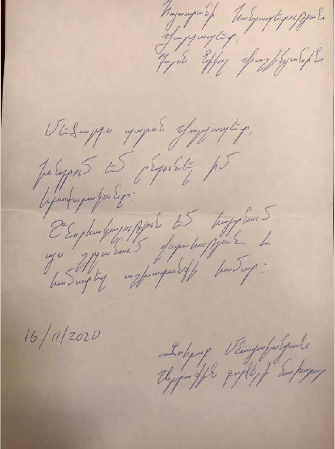 Հայաստանի Հանրապետության
վարչապետ,
պարոն Նիկոլ Փաշինյանին
Մեծարգո պարոն վարչապետ,
Խնդրում եմ ընդունել իմ
հրաժարականը:
Շնորհակալություն եմ հայտնում
այս շրջանում վստահության և
համատեղ աշխատանքի համար:
16/11/2020
Զոհրաբ Մնացականյան
Արտաքին գործերի նախարար